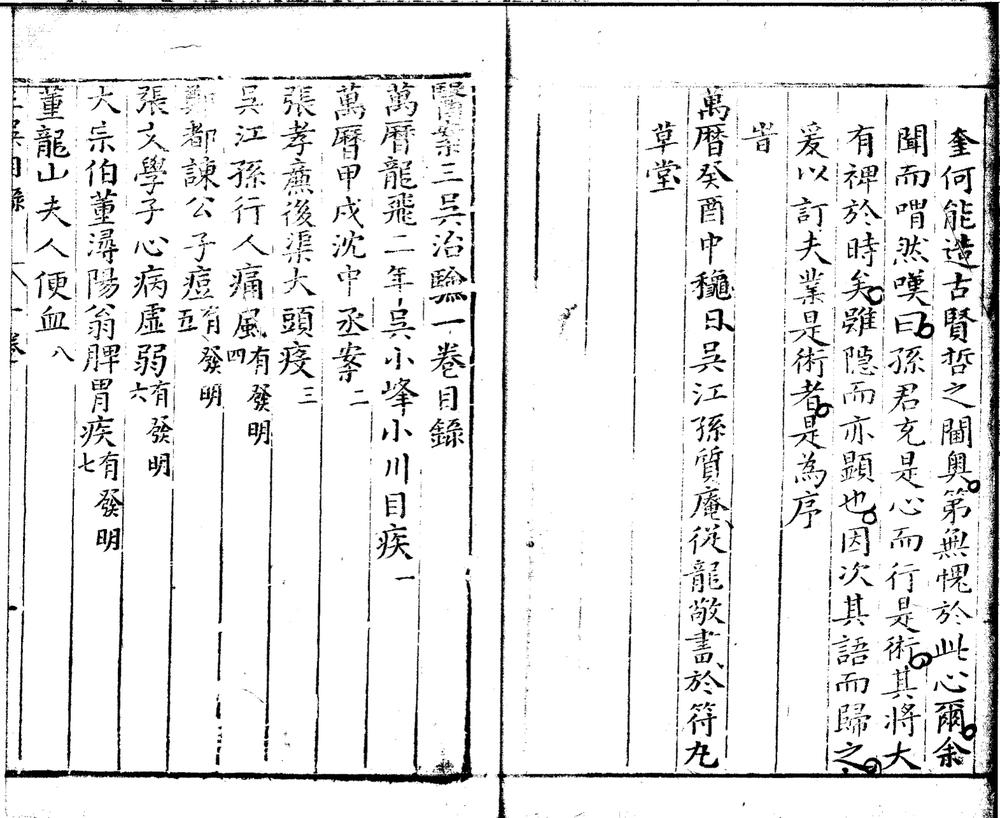 奎何能造古賢哲之閫奧第無愧於此心爾余
聞而喟然嘆曰孫君充是心而行是術其將大
有裨於時矣雖隱而亦顯也因次其語而歸之
爰以訂夫業是術者是為序
旹
萬曆癸酉中龝日吳江孫質庵從龍敬書於符九
草堂
醫案三吳治驗一卷目錄
萬曆龍飛二年吳小峰小川目疾一
萬曆甲戌沈中丞案二
張孝廉後渠大頭疫三
吳江孫行人痛風有發明四
鄭都諫公子痘有發明五
張文學子心病虛弱有發明六
大宗伯董潯陽翁脾胃疾有發明七
董龍山夫人便血八
三吳目錄 一卷